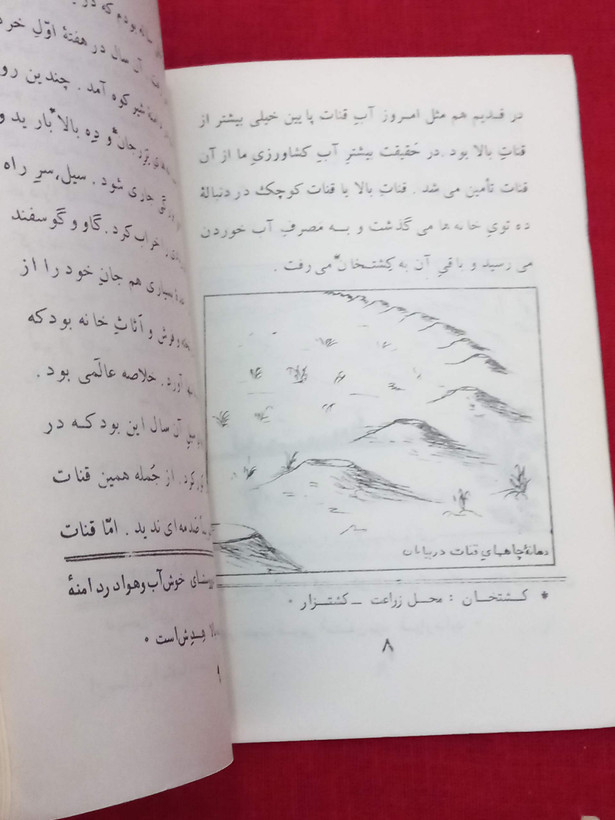 در قدیم هم مثل امروز آبِ قنات پایین خیلی بیشتر از
قناتِ بالا بود. در حَقیقت بیشترِ آبِ کشاورزیِ ما از آن
قنات تأمین می شد. قناتِ بالا یا قنات کوچک در دنبالهٔ
ده تویِ خانه ها می گذشت و بـه مصرفِ آب خوردن
می رسید و باقیِ آن به کِشتخان* می رفت.
دهانهٔ چاههایِ قنات در بیابان
* کـشتخـان : محـل زراعت ــ کشتـزار ۰
۸
ساله بودم که در
آن سال در هفتهٔ اوّلِ خرد
شیر کوه آمد. چندین رو
و دِه بالا* بار ید و
جاری شود. سیل، سرِ راه
خراب کرد. گاو و گوسفند
بسیاری هم جانِ خود را از
و فرش و آثاثِ خانه بود که
آورد. خلاصه عالَمی بود.
آن سال این بود کـه در
کرد. از جُمله همین قنات
صَدمه ای ندید. امّا قنات
خوش آب و هوا در دامنهٔ
هِـدِش است ۰
۹